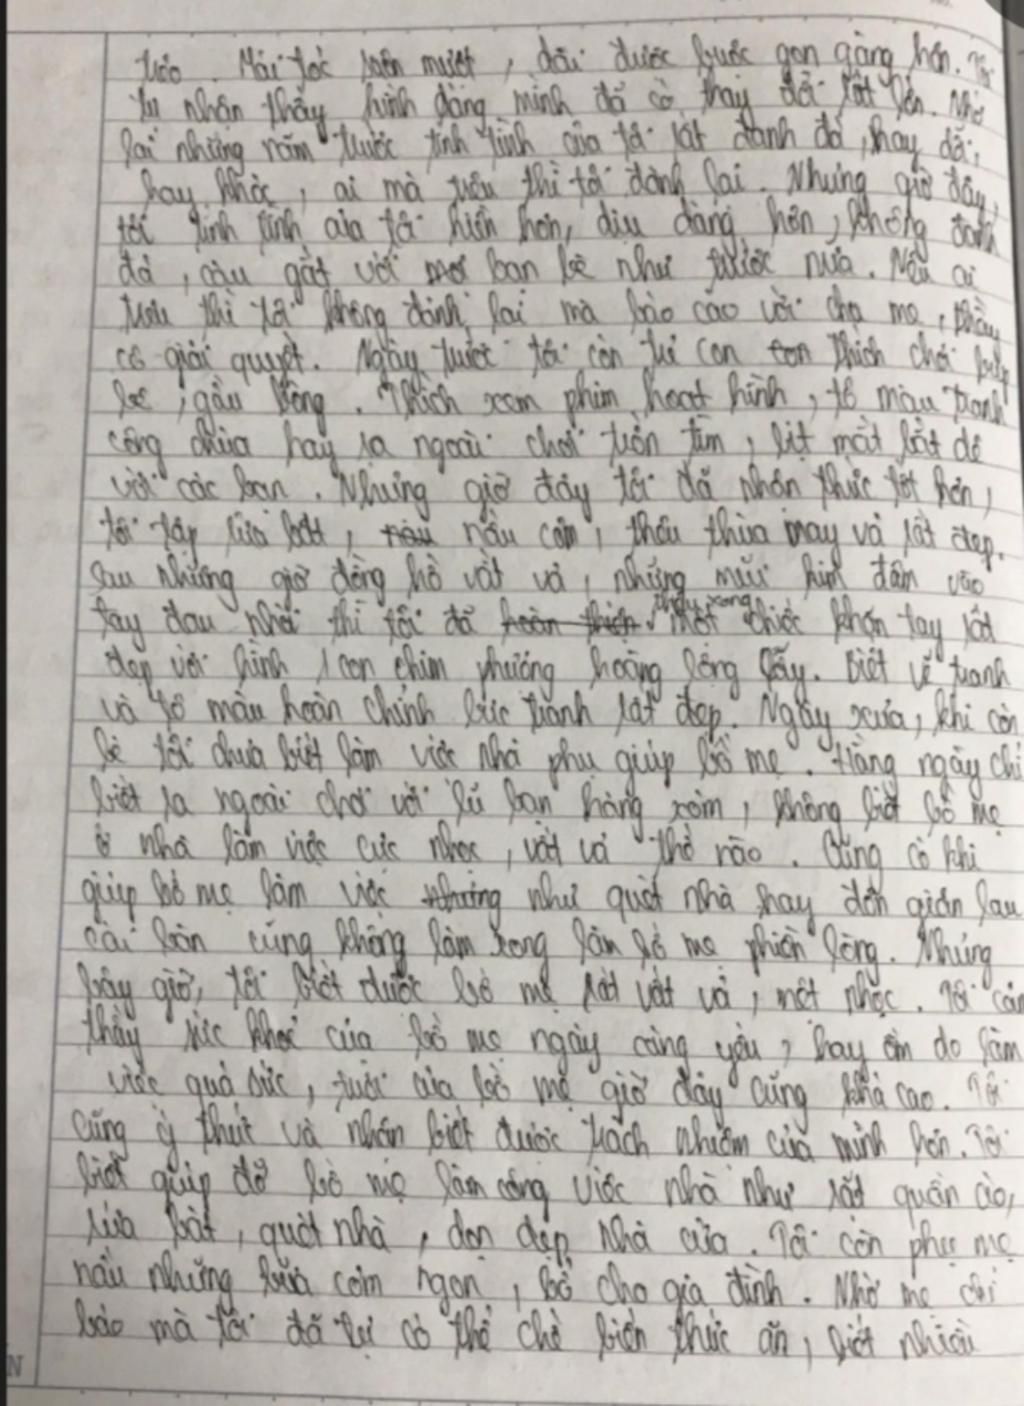 trẻo. Mái tóc suôn mượt, dài được buộc gọn gàng hơn. Tôi
tự nhận thấy hình dáng mình đã có thay đổi rất lớn. Nhớ
lại những năm trước tính tình của tôi rất đanh đá, hay dỗi,
hay khóc, ai mà trêu thì tôi đánh lại. Nhưng giờ đây,
tôi tính tình của tôi hiền hơn, dịu dàng hơn, không đanh
đá, cáu gắt với bạn bè như trước nữa. Nếu ai
trêu thì tôi không đánh lại mà báo cáo với cha mẹ, thầy
cô giải quyết. Ngày trước tôi còn trẻ con thích chơi búp
bê, gấu bông. Thích xem phim hoạt hình, tô màu tranh
công chúa hay ra ngoài chơi trốn tìm, bịt mắt bắt dê
với các bạn. Nhưng giờ đây tôi đã nhận thức tốt hơn,
tôi tập rửa bát, nấu cơm, thêu thùa may vá rất đẹp.
Sau những giờ đồng hồ vất vả, những mũi kim đâm vào
tay đau nhói thì tôi đã thêu xong một chiếc khăn tay rất
đẹp với hình 1 con chim phượng hoàng lộng lẫy. Biết vẽ tranh
và tô màu hoàn chỉnh bức tranh rất đẹp. Ngày xưa, khi còn
bé tôi chưa biết làm việc nhà phụ giúp bố mẹ. Hằng ngày chỉ
biết ra ngoài chơi với lũ bạn hàng xóm, không biết bố mẹ
ở nhà làm việc cực nhọc, vất vả thế nào. Cũng có khi
giúp bố mẹ làm việc như quét nhà hay đơn giản lau
cái bàn cũng không làm xong làm bố mẹ phiền lòng. Nhưng
bây giờ, tôi biết được bố mẹ rất vất vả, mệt nhọc. Tôi cảm
thấy sức khoẻ của bố mẹ ngày càng yếu, hay ốm do làm
việc quá sức, tuổi của bố mẹ giờ đây cũng khá cao. Tôi
cũng ý thức và nhận biết được trách nhiệm của mình hơn. Tôi
biết giúp đỡ bố mẹ làm công việc nhà như giặt quần áo,
rửa bát, quét nhà, dọn dẹp nhà cửa. Tôi còn phụ mẹ
nấu những bữa cơm ngon, bổ cho gia đình. Nhờ mẹ chỉ
bảo mà tôi đã tự có thể chế biến thức ăn, biết nhiều